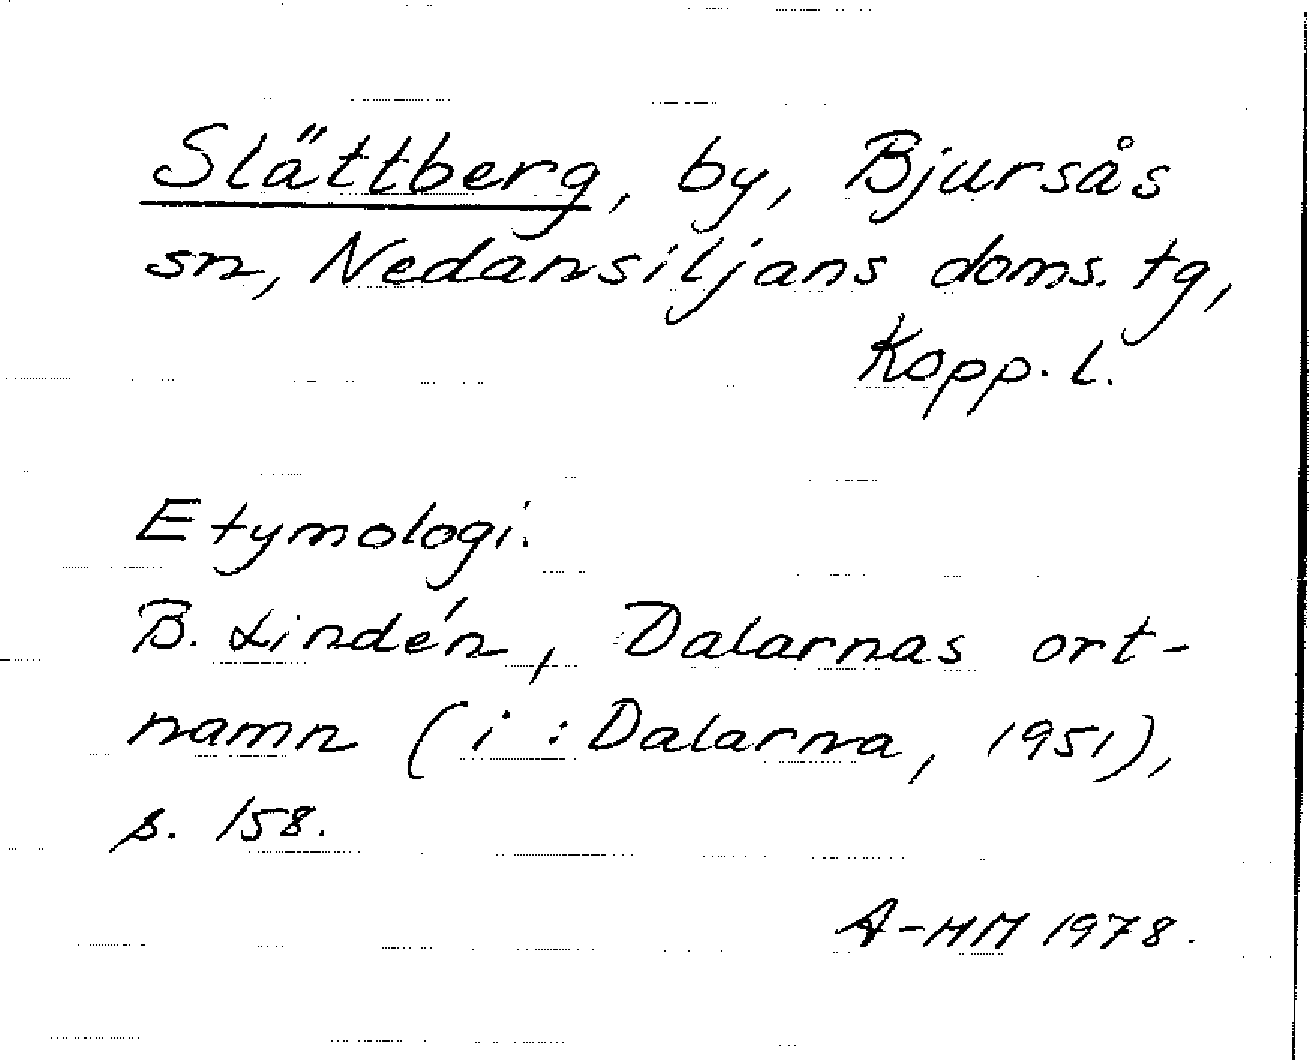 Slättberg, by, Bjursås
sn, Nedansiljans doms. tg,
Kopp. l.
Etymologi.
B. Lindén, Dalarnas ort-
namn (i: Dalarna, 1951),
s. 158.
A-HM 1978.